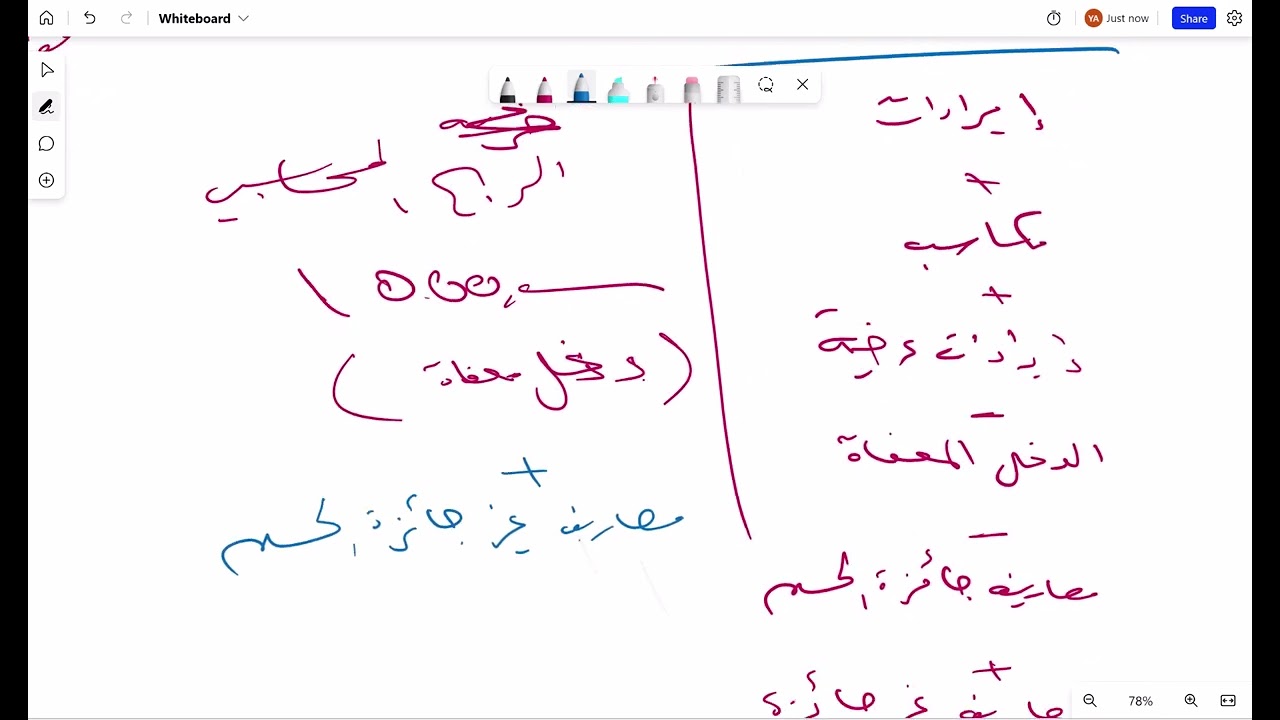 Whiteboard
YA Just now
Share
إيرادات
+
مكاسب
+
إيرادات عرضية
-
الدخل المعفاة
-
مصاريف جائزة الحسم
+
الربح المحاسبي
(دخل معفاة)
+
مصاريف غير جائزة الحسم
78%